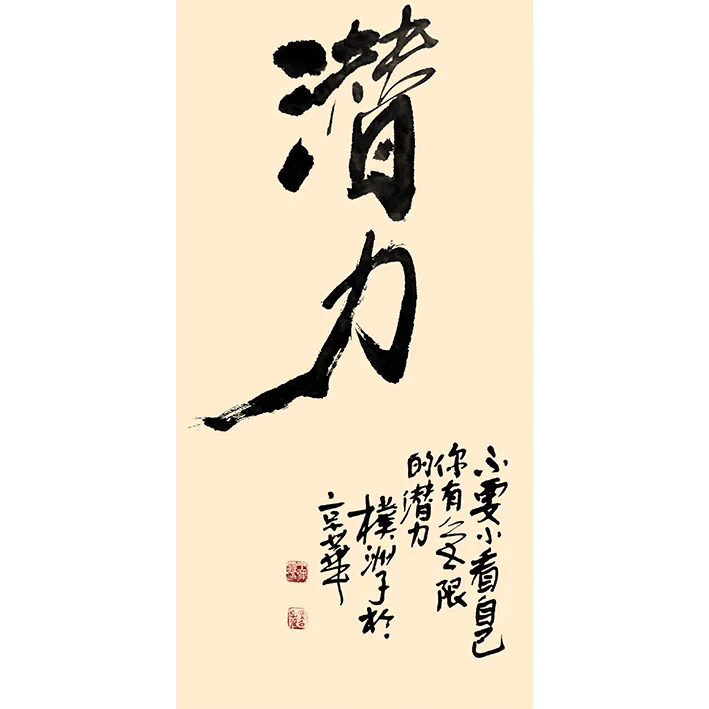 潜力
不要小看自己
你有無限
的潜力
樸洲子於
京華